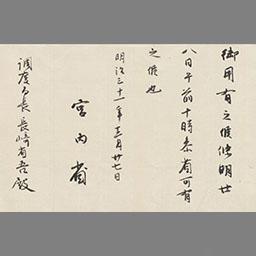 御用有之候條明廿
八日午前十時参省可有
之候也
明治三十一年十二月廿七日
宮内省
調度局長長崎省吾殿